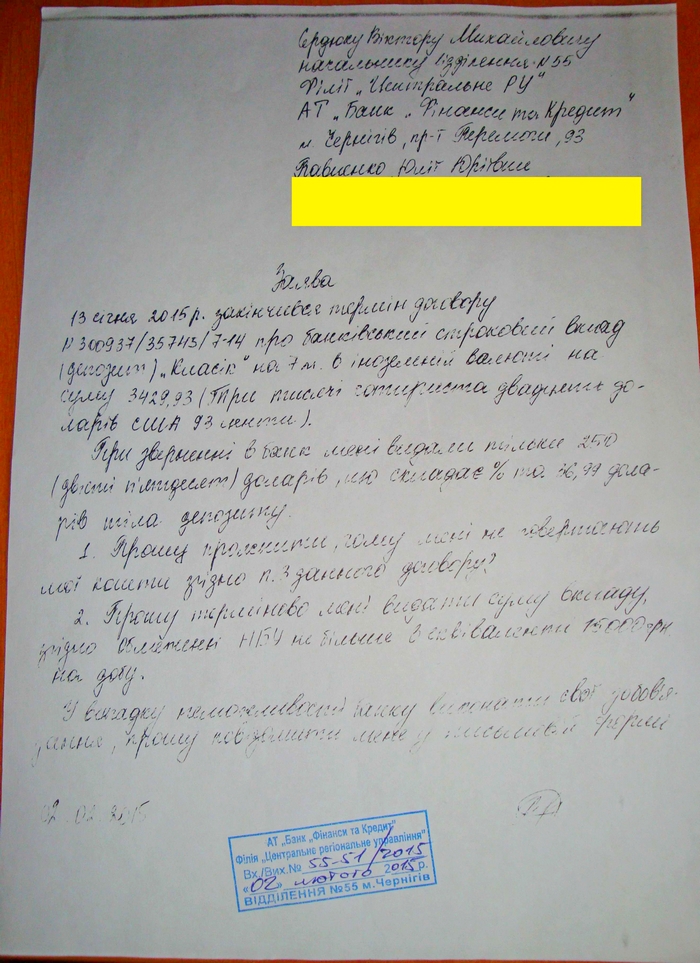 Сердюку Віктору Михайловичу
начальнику відділення №55
Філії „Центральне РУ"
АТ „Банк „Фінанси та Кредит"
м. Чернігів, пр-т Перемоги, 93
Юлії Юріївни
Заява
13 січня 2015 р. закінчився термін договору
№ 300937/35743/7-14 про банківський строковий вклад
(депозит) „Класік" на 7 м. в іноземній валюті на
суму 3429,93 (Три тисячі чотириста двадцять до-
ларів США 93 центи).
При зверненні в банк мені видали тільки 250
(двісті п'ятдесят) доларів, що складає % та 36,99 дола-
рів тіла депозиту.
1. Прошу пояснити, чому мені не повертають
мої кошти згідно п.3 данного договору?
2. Прошу терміново мені видати суму вкладу,
згідно обмеженні НБУ не більше в еквіваленти 15000 грн
на добу.
У випадку неможливості банку виконати свої зобов'я-
зання, прошу повідомити мене у письмовій формі
02.02.2015
АТ „Банк „Фінанси та Кредит"
Філія „Центральне регіональне управління"
Вх./Вих.№ 55-51/2015
«02» лютого 2015 р.
ВІДДІЛЕННЯ №55 м.Чернігів